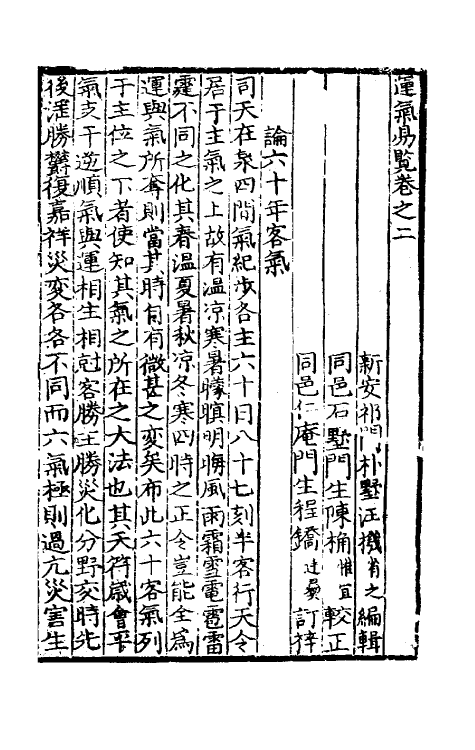 運氣易覽卷之二
新安祁門朴墅汪機省之編輯
同邑石墅門生陳桷惟宜較正
同邑仁庵門生程鐈廷彝訂梓
論六十年客氣
司天在泉四間氣紀歩各主六十日八十七刻半客行天令
居于主氣之上故有温凉寒暑矇瞑明晦風雨霜雪電雹雷
霆不同之化其春温夏暑秋凉冬寒四時之正令豈能全為
運與氣所奪則當其時自有微甚之変矣布此六十客氣列
于主位之下者使知其氣之所在之大法也其天符歳會平
氣支干逆順氣與運相生相尅客勝主勝災化分野交時先
後淫勝欝復嘉祥災変各各不同而六氣極則過亢災害生